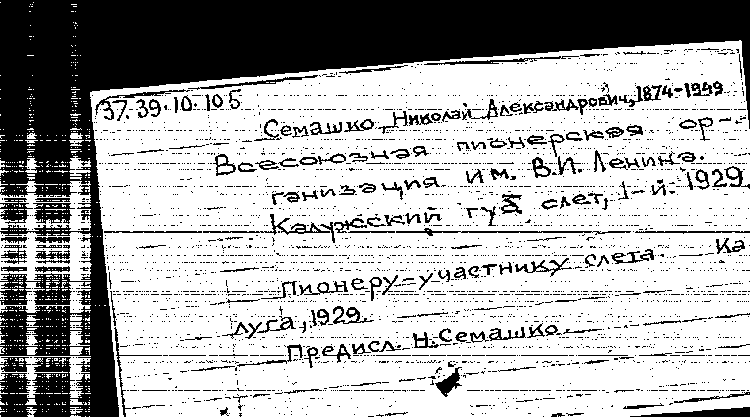 37.39.10.105
Семашко, Николай Александрович, 1874-1949
Всесоюзная пионерская ор-
ганизация им. В.И. Ленина.
Калужский губ слет, 1-й. 1929.
Пионеру-участнику слета. Ка
луга, 1929.
Предисл. Н. Семашко.